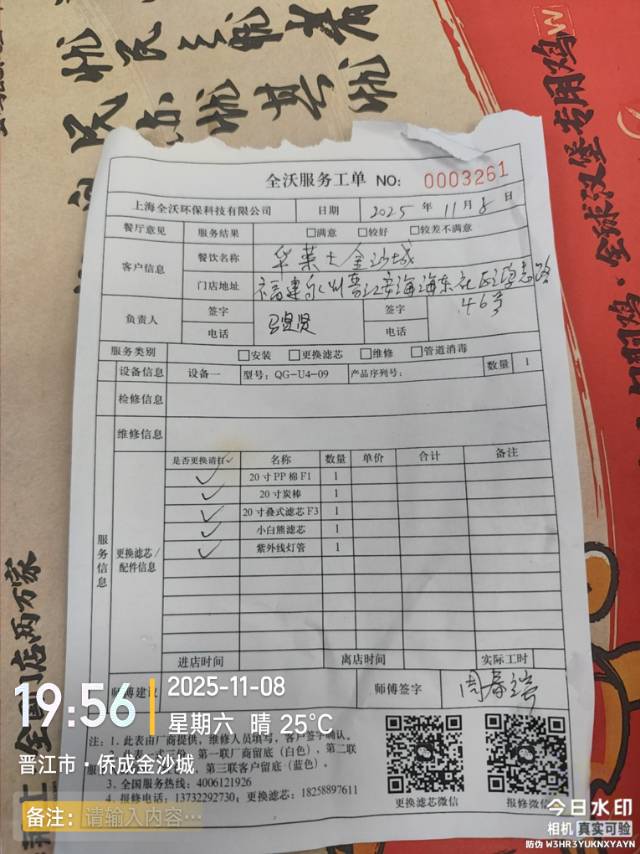 全球汉堡专用鸡
全沃服务工单 NO: 0003261
上海全沃环保科技有限公司 日期 2025 年 11 月 8 日
餐厅意见 服务结果 □满意 □较好 □较差不满意
客户信息 餐饮名称 华莱士金沙城
门店地址 福建泉州晋江安海海东社区
46号
负责人 签字 签字
电话 电话
服务类别 □安装 □更换滤芯 □维修 □管道消毒
设备信息 设备一 型号: QG-U4-09 产品序列号: 数量 1
检修信息
维修信息
服务信息
更换滤芯/配件信息
是否更换请打✓ 名称 数量 单价 合计 备注
✓ 20寸PP棉F1 1
✓ 20寸炭棒 1
✓ 20寸叠式滤芯F3 1
✓ 小白熊滤芯 1
✓ 紫外线灯管 1
进店时间 离店时间 实际工时
师傅建议 师傅签字 周春瑞
注: 1. 此表由厂商提供, 维修人员填写, 客户签字确认。
第一联厂商留底（白色）, 第二联
第三联客户留底（蓝色）。
3. 全国服务热线: 4006121926
4. 报修电话: 13732292730; 更换滤芯: 18258897611
更换滤芯微信 报修微信
19:56
2025-11-08
星期六 晴 25°C
晋江市·侨成金沙城
备注: 请输入内容…
今日水印
相机 真实可验
防伪 W3HR3YUKNXYAYN